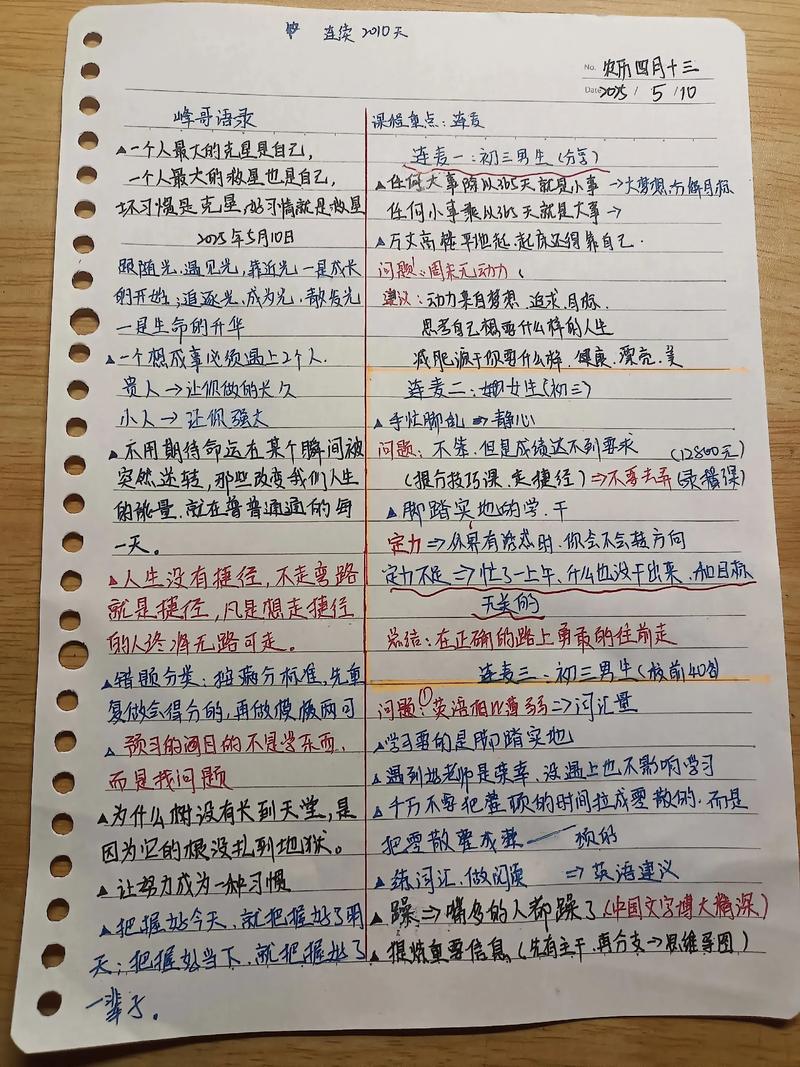 连续 2010天
No. 农历四月十三
Date 2025 / 5 / 10
峰哥语录
▲一个人最大的克星是自己，
一个人最大的救星也是自己，
坏习惯是克星，好习惯就是救星
2025年5月10日
跟随光、遇见光，靠近光一是成长
的开始；追逐光、成为光，散发光
一是生命的升华
▲一个想成事必须遇上2个人.
贵人→让你做的长久
小人→让你强大
▲不用期待命运在某个瞬间被
突然逆转，那些改变我们人生
的能量，就在普普通通的每
一天。
▲人生没有捷径，不走弯路
就是捷径，凡是想走捷径
的人终将无路可走。
▲错题分类：按满分标准，先重
复做会得分的，再做模棱两可
▲ 预习的目的不是学东西，
而是找问题
▲为什么树没有长到天堂，是
因为它的根没扎到地狱。
▲让努力成为一种习惯
▲把握好今天，就把握好了明
天；把握好当下，就把握好了
一辈子。
课程重点：连麦
连麦一：初三男生（分享）
▲任何大事除以365天就是小事 →大梦想，分解目标
任何小事乘以365天就是大事→
▲万丈高楼平地起，起床还得靠自己.
问题：周末无动力
建议：动力来自梦想、追求、目标.
思考自己想要什么样的人生
减肥源于你要什么样、健康、漂亮、美
连麦二：娜女生（初三）
▲手忙脚乱 ⇒静心
问题：不笨，但是成绩达不到要求 （12800元）
（提分技巧课、走捷径）⇒不要去弄（录播课）
▲脚踏实地的学、干
定力⇒外界有诱惑时，你会不会转方向
定力不足⇒忙了一上午、什么也没干出来、和目标
无关的
总结：在正确的路上勇敢的往前走
连麦三：初三男生（校前40名）
问题①：英语相比薄弱⇒词汇量
▲学习要的是脚踏实地
▲遇到好老师是荣幸、没遇上也不影响学习
▲千万不要把整顿的时间拉成零散的，而是
把零散变成整 顿的
▲练词汇、做阅读 ⇒英语建议
▲ 躁⇒嘴多的人都躁了（中国文字博大精深）
▲ 提炼重要信息（先有主干，再分支→思维导图）